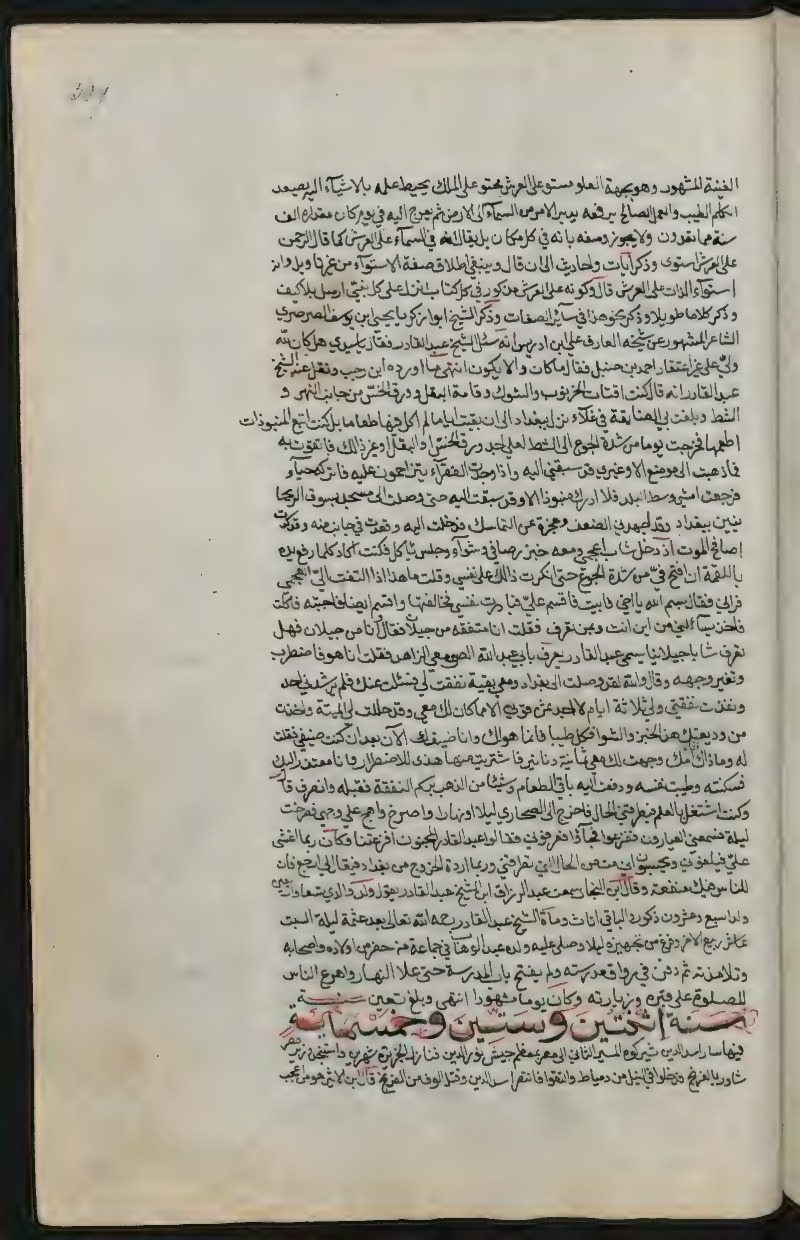 الغنية المشهور وهو بجهة العلو مستو على العرش محتو على الملك محيط علمه بالاشيآء اليه يصعد
الكلم الطيب والعمل الصالح يرفعه يدبر الامر من السمآء الى الارض ثم يعرج اليه في يوم كان مقداره الف
سنة مما تعدون ولا يجوز وصفه بانه في كل مكان بل يقال انه في السمآء على العرش كما قال الرحمن
على العرش استوى وذكر آيات واحاديث الى ان قال وينبغي اطلاق صفة الاستوآء من غير تاويل وانه
استوآء الذات على العرش قال وكونه على العرش مذكور في كل كتاب انزل على كل نبي ارسل بلا كيف
وذكر كلاما طويلا وذكر نحو هذا في سآئر الصفات وذكر الشيخ ابو زكريا يحيى ابن يوسف الصرصري
الشاعر المشهور عن شيخه العارف علي ابن ادريس انه سئل الشيخ عبد القادر فقال يا سيدي هل كان لله
ولي على غير اعتقاد احمد بن حنبل فقال ما كان ولا يكون انتهى ما اورده ابن رجب ونقل عنه الشيخ
عبد القادر انه قال كنت اقتات الخرنوب والشوك وقمامة البقل وورق الخس من جانب النهر و
الشط وبلغت بي الضايقة في غلآء نزل ببغداد الى ان بقيت اياما لم اكل فيها طعاما بل كنت اتبع المنبوذات
اطعمها فخرجت يوما من شدة الجوع الى الشط لعلي اجد ورق الخس او البقل او غير ذالك فاتقوت به
فما ذهبت الى موضع الا وغيري قد سبقني اليه واذا وجدت الفقرآء يتزاحمون عليه فاتركه حيآء
فرجعت امشي وسط البلد فلا ادرك منبوذا الا وقد سبقت اليه حتى وصلت الى مسجد بسوق الريحا
نيين ببغداد وقد اجهدني الضعف وعجزت عن التماسك فدخلت اليه وقعدت في جانب منه وقد كدت
اصافح الموت اذ دخل شاب اعجمي ومعه خبز رصافي وشوآء وجلس ياكل فكنت اكاد كلما رفع يده
باللقمة ان افتح فيّ من شدة الجوع حتى انكرت ذالك على نفسي وقلت ما هذا اذا التفت اليّ العجمي
فراني فقال بسم الله يا اخي فابيت فاقسم عليّ فبادرت نفسي فخالفتها واقسم ايضا فاجبته فاكلت
فاخذ يسآئلني من اين انت وبمن تعرف فقلت انا متفقه من جيلان فقال وانا من جيلان فهل
تعرف شابا جيلانيا يسمى عبد القادر يعرف بابي عبد الله الصومعي الزاهد فقلت انا هو فاضطرب
وتغير وجهه وقال والله لقد وصلت الى بغداد ومعي بقية نفقت لي فسئلت عنك فلم يرشدني احد
ونفذت نفقتي ولي ثلاثة ايام لا اجد ثمن قوتي الا مما كان لك معي وقد حلت لي الميتة واخذت
من وديعتك هذا الخبز والشوا فكل طيبا فانما هو لك وانا ضيفك الآن بعد ان كنت ضيفي فقلت
له وما ذاك قال امك وجهت لك معي ثمانية دنانير فاشتريت منها هذى للاضطرار فانا معتذر اليك
فسكنته وطيبت نفسه ودفعت اليه باقي الطعام وشيئا من الذهب برسم النفقة فقبله وانصرف قال
وكنت اشتغل بالعلم فيطرقني الحال فاخرج الى الصحاري ليلا او نهارا واصرخ واهج على وجهي فصرخت
ليلة فسمعني العيارون ففزعوا فجآؤا فعرفوني فقالوا عبد القادر المجنون افزعتنا وكان ربما اغشى
عليّ فيلفوني ويحسبون اني مت من الحال التي تطرقني وربما اردت الخروج من بغداد فيقال لي ارجع فان
للناس فيك منفعة وقال ابن النجار سمعت عبد الرزاق ابن الشيخ عبد القادر يقول ولد والدي تسعا واربعين
ولدا سبع وعشرون ذكورا والباقي اناث ومات الشيخ عبد القادر رحمه الله تعالى بعد عتمة ليلة السبت
عاشر ربيع الاخر وفرغ من تجهيزه ليلا وصلى عليه ولده عبد الوهاب في جماعة من حضر من اولاده واصحابه
وتلامذته ثم دفن في رواق مدرسته ولم يفتح باب المدرسة حتى علا النهار واهرع الناس
للصلوة على قبره وزيارته وكان يوما مشهودا انتهى وبلغ تسعين سنة
سنة اثنتين وستين وخمسماية
فيها سار اسد الدين شيركوه المسير الثاني الى مصر بمعظم جيش نور الدين فنازل الجيزة شهرين واستنجد وزير مصر
شاور بالفرنج فدخلوا في النيل من دمياط والتقوا فانتصر اسد الدين وقتل الوف من الفرنج قال ابن الاثير هو من اعجب